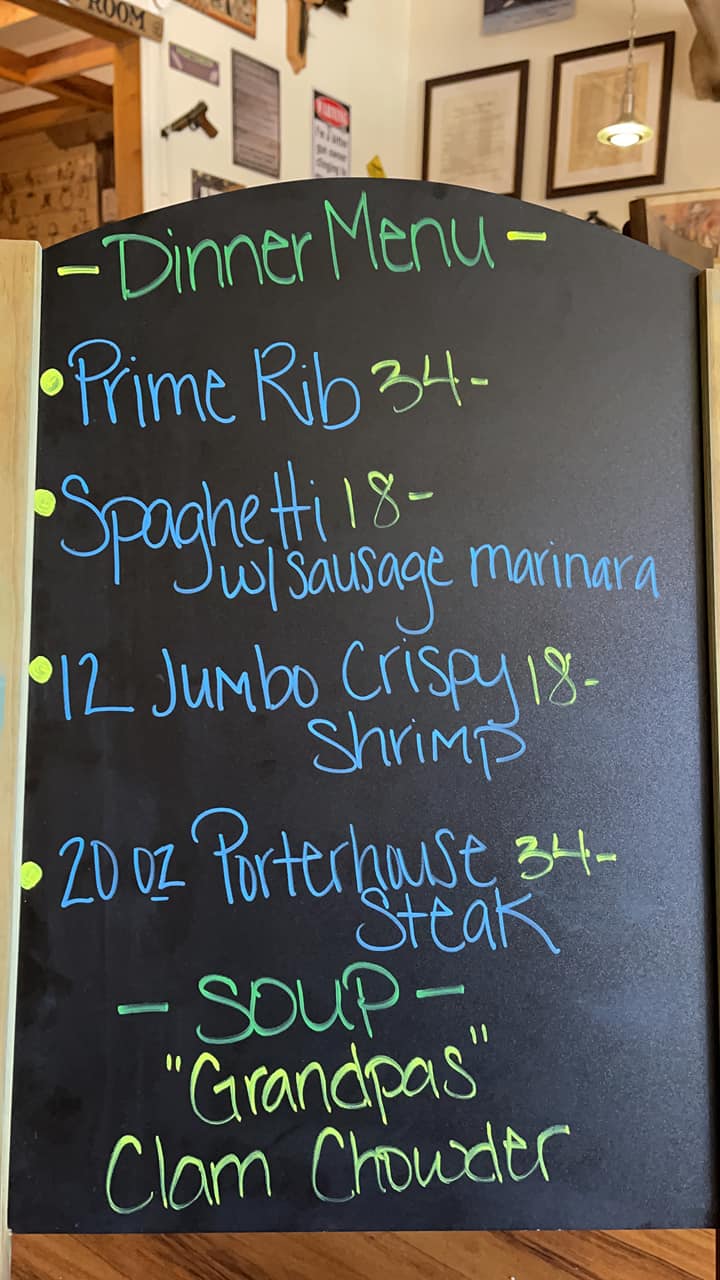 ROOM
WARNING
I'm a bitter
gun owner
clinging to
- Dinner Menu -
Prime Rib 34-
Spaghetti 18-
w/sausage marinara
12 Jumbo Crispy 18-
Shrimp
20 oz Porterhouse 34-
Steak
- SOUP -
"Grandpas"
Clam Chowder